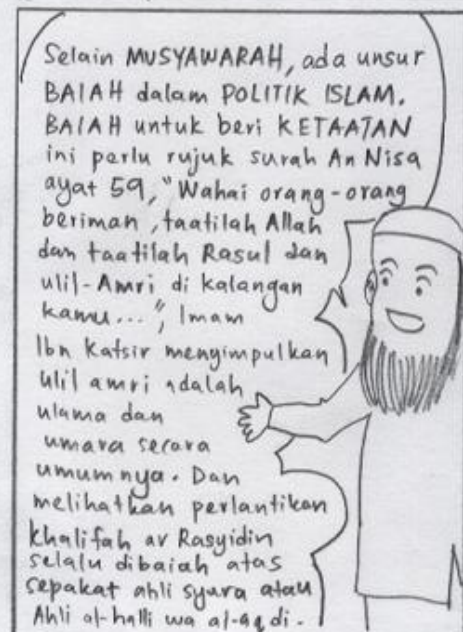 Selain MUSYAWARAH, ada unsur
BAIAH dalam POLITIK ISLAM.
BAIAH untuk beri KETAATAN
ini perlu rujuk surah An Nisa
ayat 59, "Wahai orang-orang
beriman, taatilah Allah
dan taatilah Rasul dan
ulil-Amri di kalangan
kamu...", Imam
Ibn Katsir menyimpulkan
ulil amri adalah
ulama dan
umara secara
umumnya. Dan
melihatkan perlantikan
khalifah ar Rasyidin
selalu dibaiah atas
sepakat ahli syura atau
Ahli al-halli wa al-aqdi.